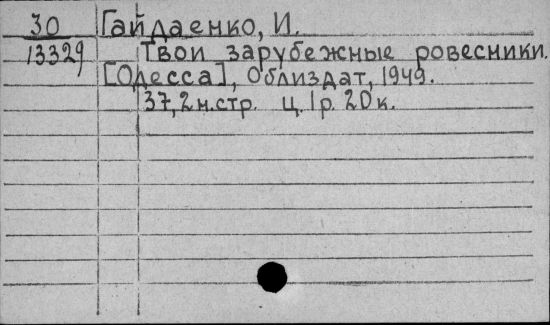 30 Гайдаенко, И.
13329 Твои зарубежные ровесники.
[Одесса], Облиздат, 1949.
37,2 н.стр. ц. 1р. 20к.